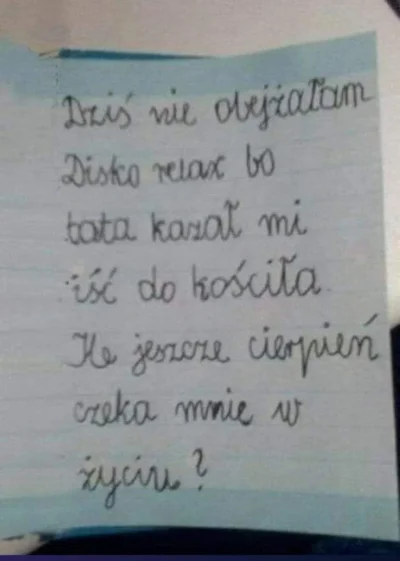 Dziś nie obejżałam
Disko relax bo
tata kazał mi
iść do kościła
Ile jeszcze cierpień
czeka mnie w
życiu?